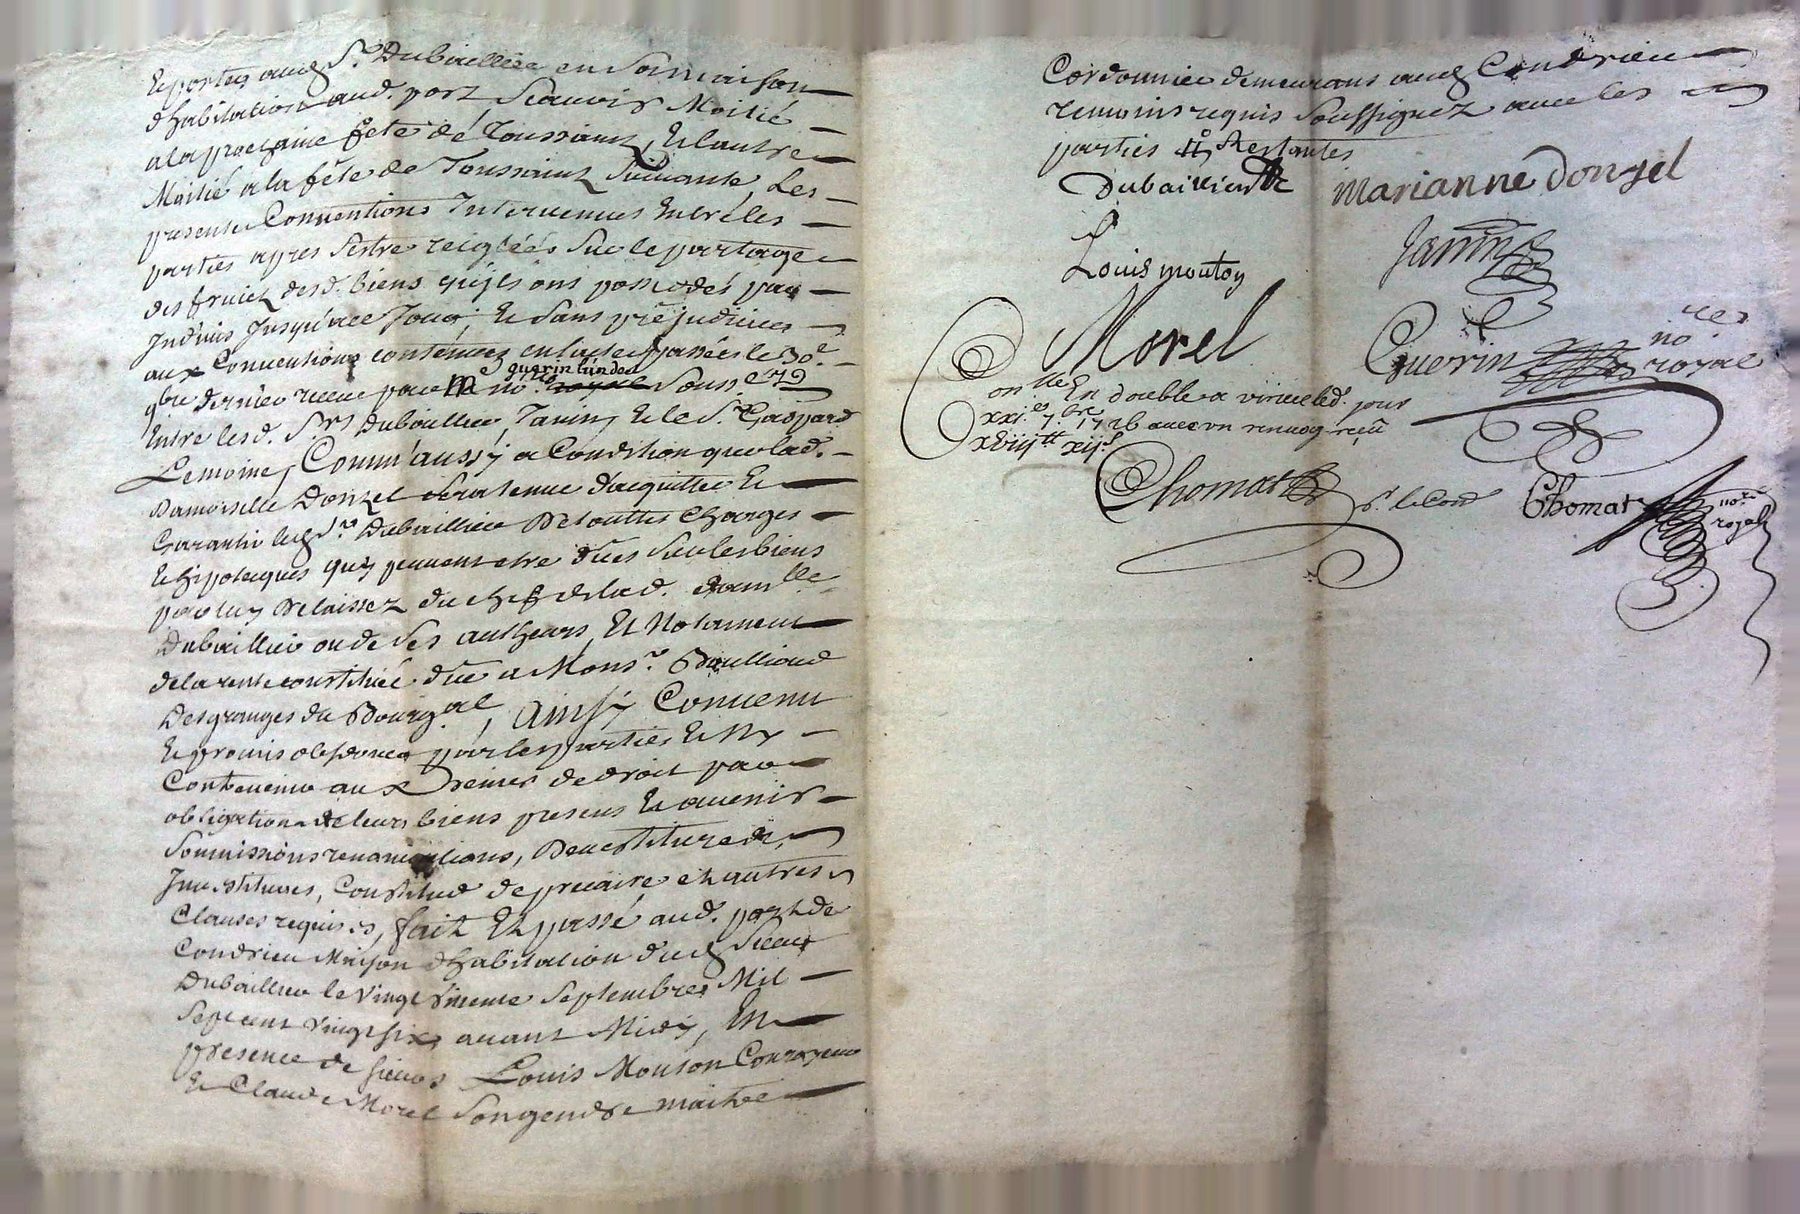 Et portez aud. Sr. Dubaillier en sa maison
d'habitation aud. port, Scauoir Moitié
a la prochaine fete de Toussaint, Et lautre
Moitié a la fête de Toussaint Suiuante, Les
presentes Conuentions Interuenues Entre les
parties apres s'estre reiglées Sur le partage
des fruicts desd. biens qu'ils ont possedés par
Indiuis Jusqu'a ce Jour, Et Sans prejudice
aux Conuentions contenues en lacte passé le 30e.
9bre dernier receu par Me
guerin l'un des
no.res Souss.e
Entre lesd. Srs Dubaillier Janin, Et le Sr. Gaspard
Lemoine, Comm'aussy a Condition que lad.
Damoiselle Donzel sera tenue d'acquitter Et
Garantir led. Sr. Dubaillier De touttes Charges
Et hipotecques quy peuuent etre dues Sur les biens
par luy Delaissez du chef de lad. dam.lle
Dubaillier ou de Ses autheurs, Et Notament
de la rente constituée düe a Mons.r Boullioud
Desgranges du Bourg.al, Ainsy Conuenu
Et promis obseruer par les parties Et N'y
Contreuenir aux peines de droit par
obligation de leurs biens presens Et auenir
Soumissions renonciations, Deuestitures,
Inuestitures, Constitut de precaire et autres
Clauses requises, fait Et passé aud. port de
Condrieu Maison d'habitation dud. Sieur
Dubaillier le Vingt Vnieme Septembre Mil
Sept cent vingt six, auant Midy, En
presence de sieurs Louis Mouton Courroyeur
Et Claude Morel Son gendre maitre
Cordonnier demeurans aud. Condrieu
temoins requis Soussignez auec les
parties Restantes
Dubaillier
Marianne Donzel
Louis mouton
Janin
Morel
Guerin no.re royal
Con.lle En double a virieu led. jour
xxi.e 7.bre 1726 auec vn renuoy reçu
xviij.tt xij.s
Chomat
p.r le Con.
Chomat no.re royal